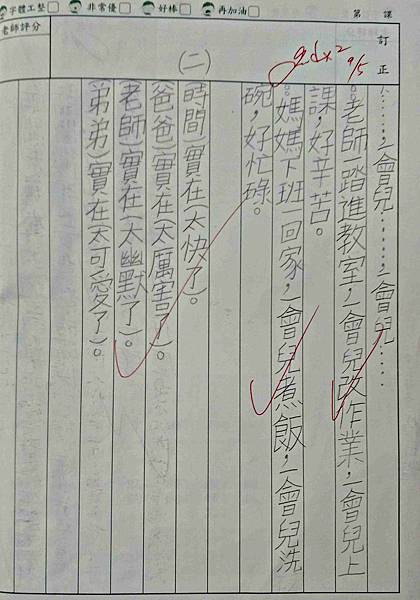 字體工整 非常優 好棒 再加油 第 課
老師評分
訂正
9/5
……，一會兒……，一會兒……
。老師一踏進教室，一會兒改作業，一會兒上
課，好辛苦。
。媽媽下班一回家，一會兒煮飯，一會兒洗
碗，好忙碌。
(二)
時間)實在(太快了)。
(爸爸)實在(太厲害了)。
(老師)實在(太幽默了)。
弟弟)實在(太可愛了)。